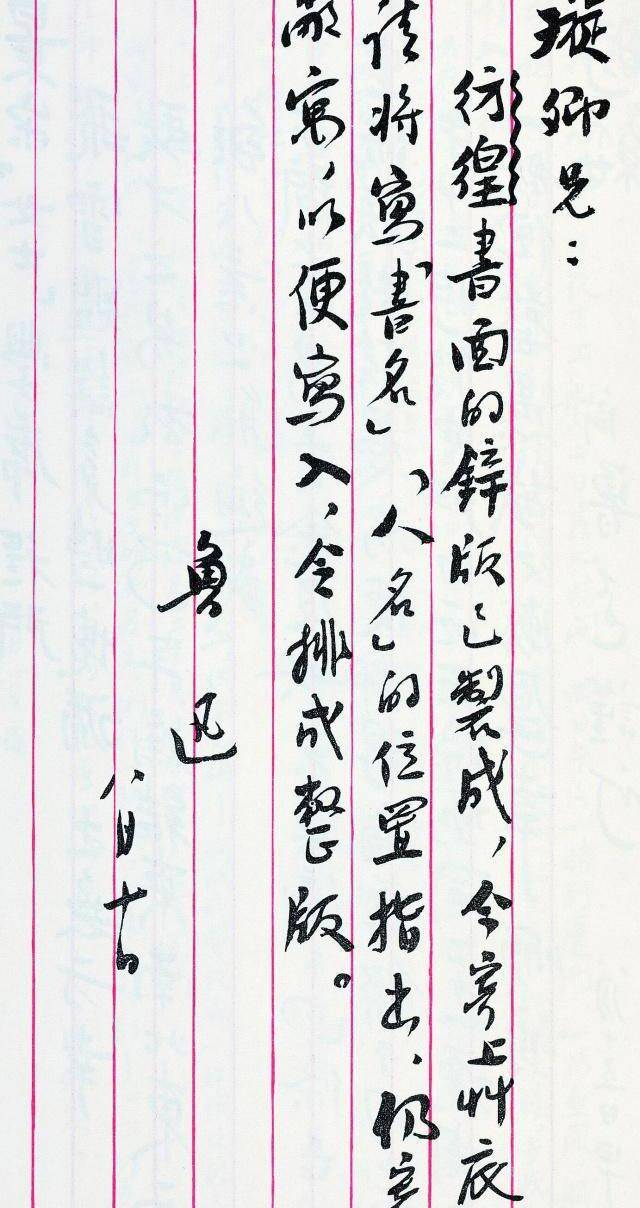 璇卿兄：
彷徨書面的鋅版已製成，今寄上艸底
請將寫「書名」「人名」的位置指出，仍寄
敝寓，以便寫入，令排成整版。
魯迅
八月十日